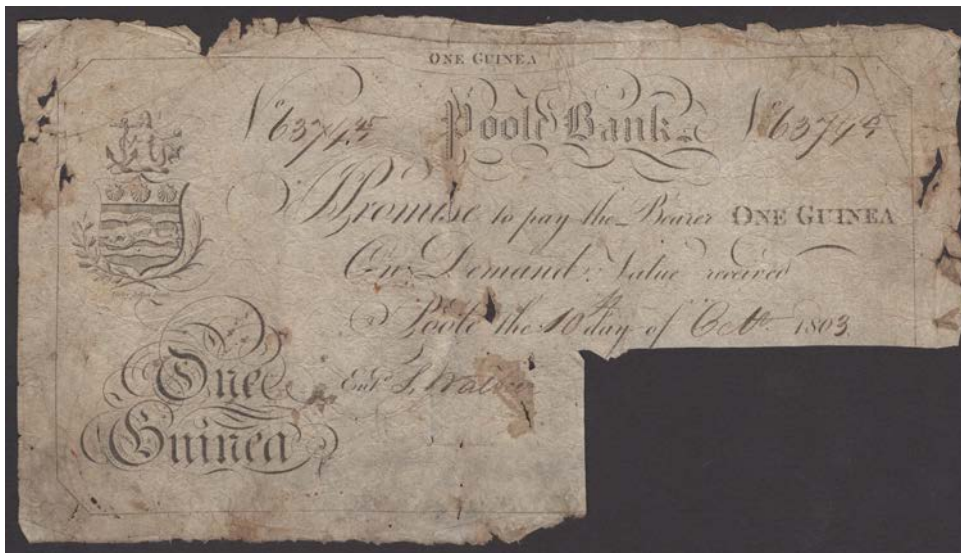 ONE GUINEA
No 63745 Poole Bank No 63745
I Promise to pay the Bearer ONE GUINEA
On Demand Value received
Poole the 10th day of Octr. 1803.
One
Guinea
Entd